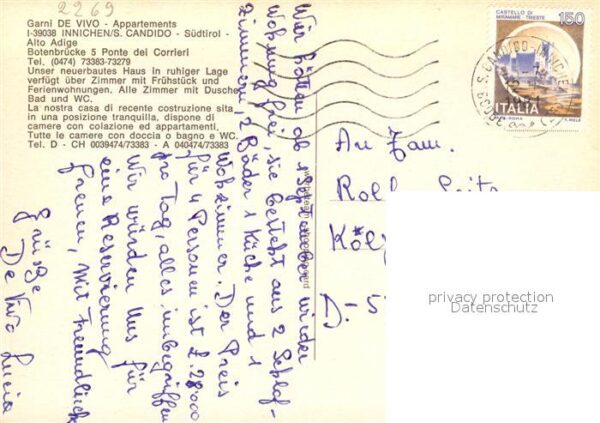 2269
Garni DE VIVO - Appartements
I-39038 INNICHEN/S. CANDIDO - Südtirol -
Alto Adige
Botenbrücke 5 Ponte dei Corrieri
Tel. (0474) 73383-73279
Unser neuerbautes Haus in ruhiger Lage
verfügt über Zimmer mit Frühstück und
Ferienwohnungen. Alle Zimmer mit Dusche,
Bad und WC.
La nostra casa di recente costruzione sita
in una posizione tranquilla, dispone di
camere con colazione ed appartamenti.
Tutte le camere con doccia o bagno e WC.
Tel. D - CH 0039474/73383 - A 040474/73383
CASTELLO DI
MIRAMARE - TRIESTE
150
ITALIA
S. CANDIDO - INNICHEN
Wir hätten ab 1 September wieder
Wohnung frei, sie besteht aus 2 Schlaf-
zimmern, 2 Bäder 1 Küche und 1
Wohzimmer. Der Preis
für 4 Personen ist £. 28000
pro Tag, alles imbegriffen
Wir würden Uns für
eine Reservierung
freuen, Mit Freundlichen
Grüsse
De Vivo Lucia
An Fam.
Rolf
Köl
D.-5
privacy protection
Datenschutz